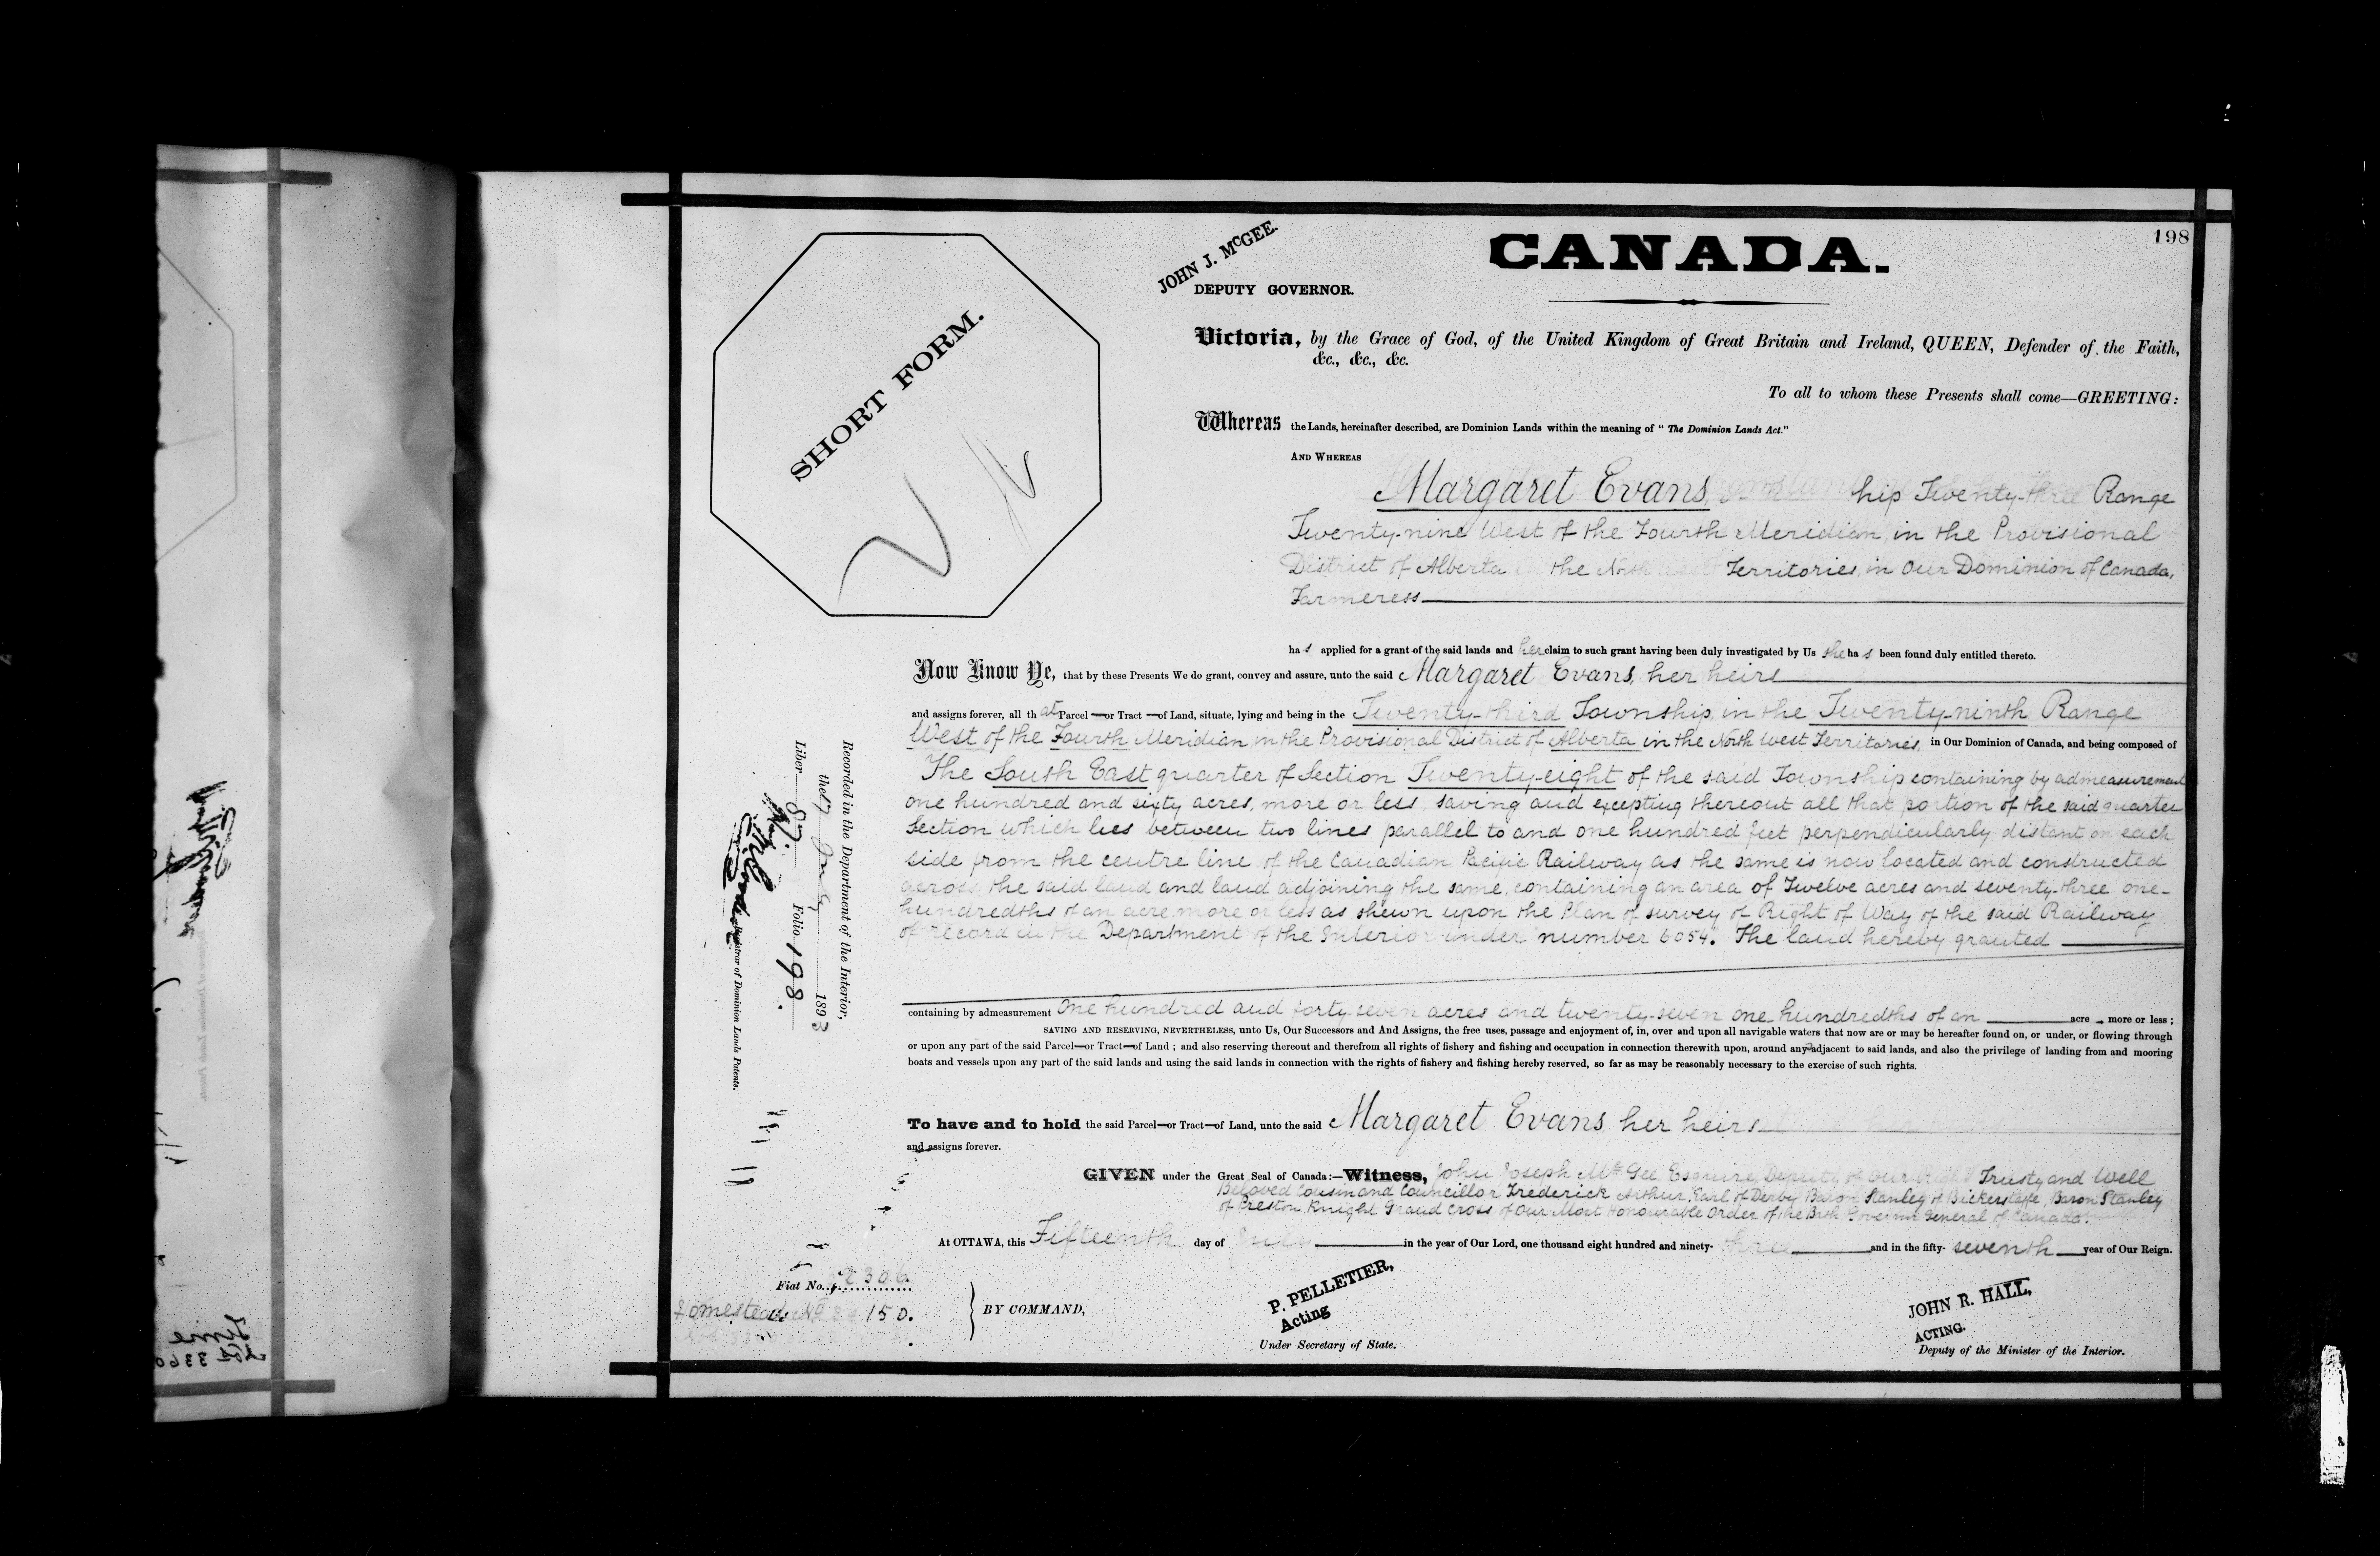 198
CANADA.
JOHN J. McGEE.
DEPUTY GOVERNOR.
SHORT FORM.
Victoria, by the Grace of God, of the United Kingdom of Great Britain and Ireland, QUEEN, Defender of the Faith,
&c., &c., &c.
To all to whom these Presents shall come—GREETING:
Whereas the Lands, hereinafter described, are Dominion Lands within the meaning of "The Dominion Lands Act."
AND WHEREAS
Margaret Evans, hip Twenty-three Range
Twenty-nine West of the Fourth Meridian, in the Provisional
District of Alberta in the North West Territories, in Our Dominion of Canada,
Farmeress
has applied for a grant of the said lands and her claim to such grant having been duly investigated by Us she has been found duly entitled thereto.
Now Know Ye, that by these Presents We do grant, convey and assure, unto the said Margaret Evans, her heirs
and assigns forever, all that Parcel —or Tract —of Land, situate, lying and being in the Twenty-third Township, in the Twenty-ninth Range
West of the Fourth Meridian, in the Provisional District of Alberta in the North West Territories, in Our Dominion of Canada, and being composed of
The South East quarter of Section Twenty-eight of the said Township containing by admeasurement
one hundred and sixty acres, more or less, saving and excepting thereout all that portion of the said quarter
Section which lies between two lines parallel to and one hundred feet perpendicularly distant on each
side from the centre line of the Canadian Pacific Railway as the same is now located and constructed
across the said land and land adjoining the same, containing an area of Twelve acres and seventy-three one-
hundredths of an acre more or less as shewn upon the Plan of survey of Right of Way of the said Railway
of record in the Department of the Interior under number 6054. The land hereby granted
containing by admeasurement One hundred and forty-seven acres and twenty-seven one hundredths of an acre , more or less ;
SAVING AND RESERVING, NEVERTHELESS, unto Us, Our Successors and And Assigns, the free uses, passage and enjoyment of, in, over and upon all navigable waters that now are or may be hereafter found on, or under, or flowing through
or upon any part of the said Parcel—or Tract—of Land ; and also reserving thereout and therefrom all rights of fishery and fishing and occupation in connection therewith upon, around any adjacent to said lands, and also the privilege of landing from and mooring
boats and vessels upon any part of the said lands and using the said lands in connection with the rights of fishery and fishing hereby reserved, so far as may be reasonably necessary to the exercise of such rights.
To have and to hold the said Parcel—or Tract—of Land, unto the said Margaret Evans her heirs
and assigns forever.
GIVEN under the Great Seal of Canada:—Witness, John Joseph McGee Esquire, Deputy of Our Right Trusty and Well
Beloved Cousin and Councillor Frederick Arthur, Earl of Derby Baron Stanley of Bickerstaffe, Baron Stanley
of Preston, Knight Grand Cross of Our Most Honourable Order of the Bath Governor General of Canada.
At OTTAWA, this Fifteenth day of July in the year of Our Lord, one thousand eight hundred and ninety-three and in the fifty-seventh year of Our Reign.
Fiat No. 2306.
Homestead 150.
BY COMMAND,
P. PELLETIER,
Acting
Under Secretary of State.
JOHN R. HALL,
ACTING.
Deputy of the Minister of the Interior.
Recorded in the Department of the Interior,
the 17 July 1893
Liber 87. Folio 198.
Registrar of Dominion Lands Patents.